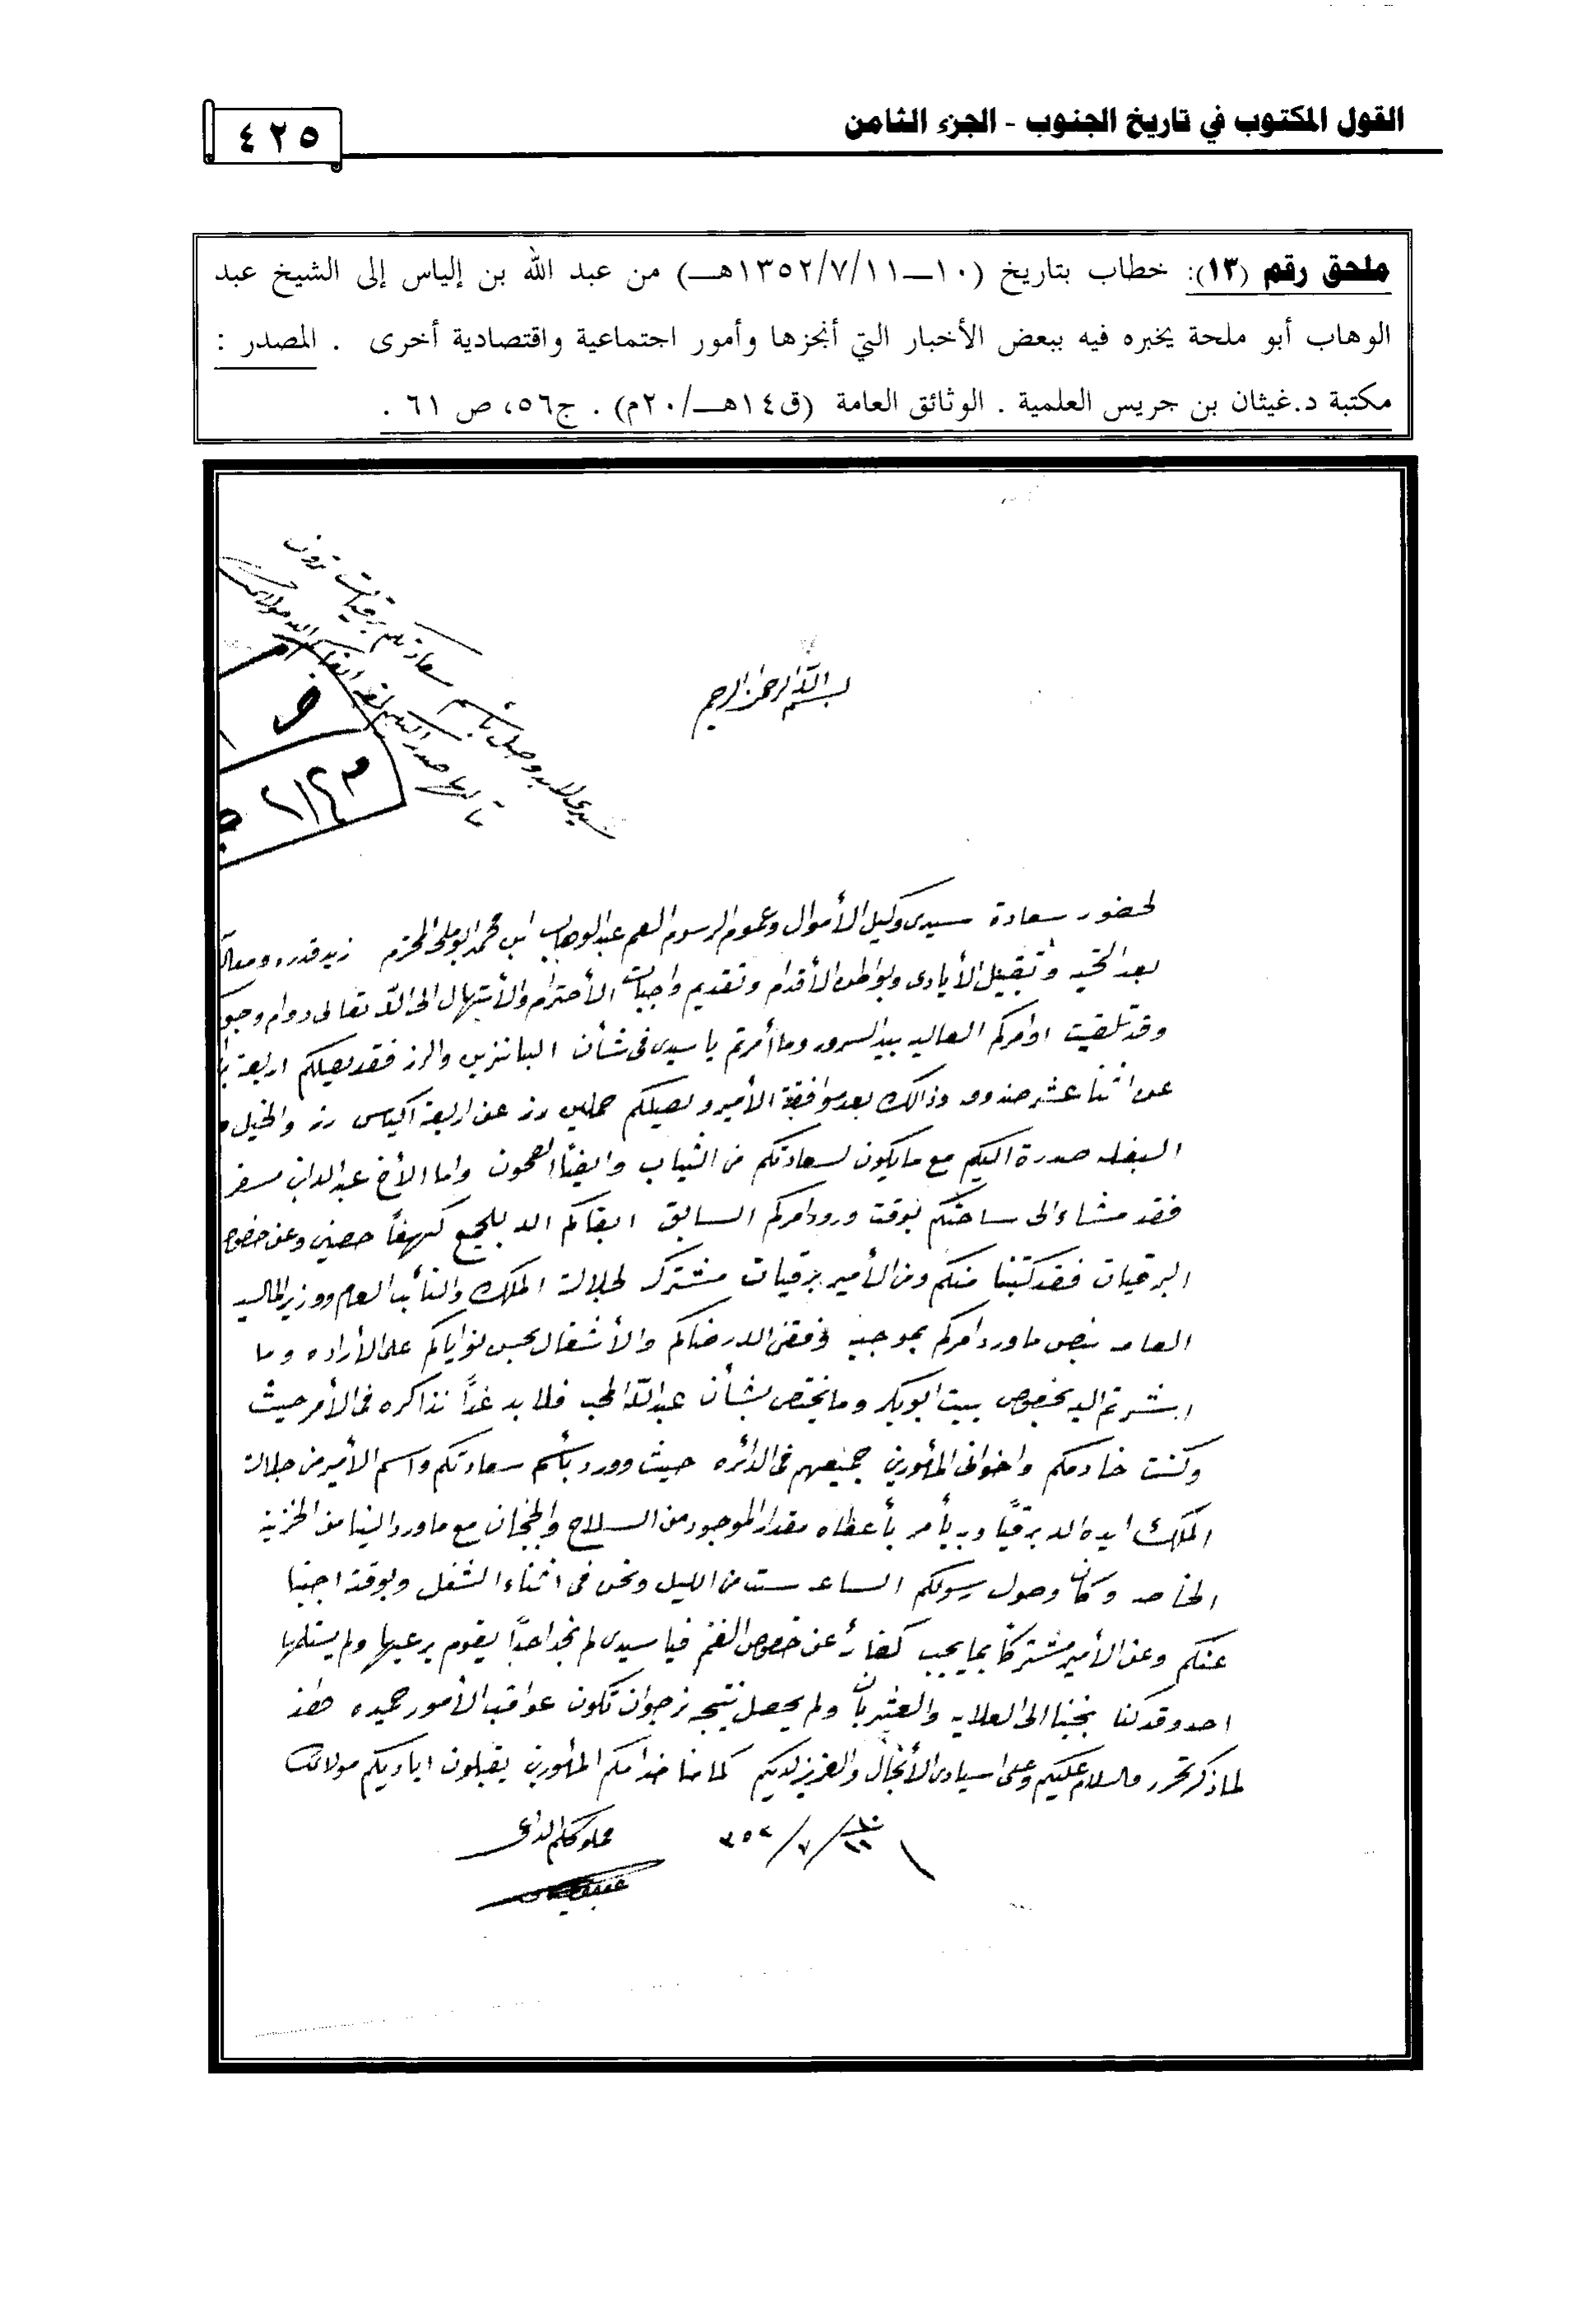 القول المكتوب في تاريخ الجنوب - الجزء الثامن
٤٢٥
ملحق رقم (١٣): خطاب بتاريخ (١٠ــ١٣٥٢/٧/١١هــ) من عبد الله بن إلياس إلى الشيخ عبد
الوهاب أبو ملحة يخبره فيه ببعض الأخبار التي أنجزها وأمور اجتماعية واقتصادية أخرى . المصدر :
مكتبة د.غيثان بن جريس العلمية . الوثائق العامة (ق١٤هــ/٢٠م) . ج٥٦، ص ٦١ .
سيدي لابد وصل بأسم سعادتكم برقيات ترون
بسم الله الرحمن الرحيم
لحضور سعادة سيدى وكيل الأموال وعموم الرسوم العم عبدالوهاب ابن محمد ابوملحه المحترم زيد قدره ومعاله
بعد التحيه وتقبيل الأيادى وبواطن الأقدام وتقديم واجبات الأحترام والأبتهال الى الله تعالى دوام وجو
وقد تلقيت اوامركم العاليه بيد السرور وما أمرتم يا سيدى فى شأن البانزين والرز فقد يصلكم اربعة
عن اثنا عشر صندوق وذالك بعد موافقة الأمير ويصيلكم حملين رز عن اربعة اكياس رز والخيل و
البغله صدرة اليكم مع ما يكون لسعادتكم من الثياب وايضًا الصحون واما الأخ عبدالله ابن مسفر
فقد مشاء الى ساحتكم بوقت ورود امركم السابق ابقاكم الله للجميع كهفاً حصين وعن خصوص
البرقيات فقد كتبنا منكم ومن الأمير برقيات مشترك لجلالة الملك والنائب العام ووزير الماليه
العامه بنص ما ورد امركم بموجبه وفقنى الله رضاكم والأشغال بحسن نواياكم على الأراده وما
اشرتم اليه بخصوص بيت ابوبكر وما يختص بشأن عبدالله المحب فلا بد غداً نذاكره فى الأمر حيث
وكنت خادمكم واخوانى المأمورين جميعهم فى الدائره حيث وورد بأسم سعادتكم واسم الأمير من جلالة
الملك ايده الله برقيًا وبه يأمر بأعطاه مقدار الموجود من السلاح والجبخان مع ماورد الينا من الخزينة
الخاصه وكان وصول رسولكم الساعه ست من الليل ونحن فى اثناء الشغل وبوقته اجبنا
عنكم وعن الأمير مشتركاً بما يجب كفاءً عن خصوص الغنم فيا سيدى لم نجد احداً يقوم برعيها ولم يستلمها
احد وقد كنا نجبنا الى العلايه ولم يحصل نتيجه نرجوا ان تكون عواقب الأمور حميده هذا
لماذكر تحرر والسلام عليكم وعلى اسيادى الأنجال والعزيز لديكم كما منا خدامكم المأمورين يقبلون اياديكم مولاى
١٠/١١ / ٧ / ٣٥٢
مملوككم الداعى